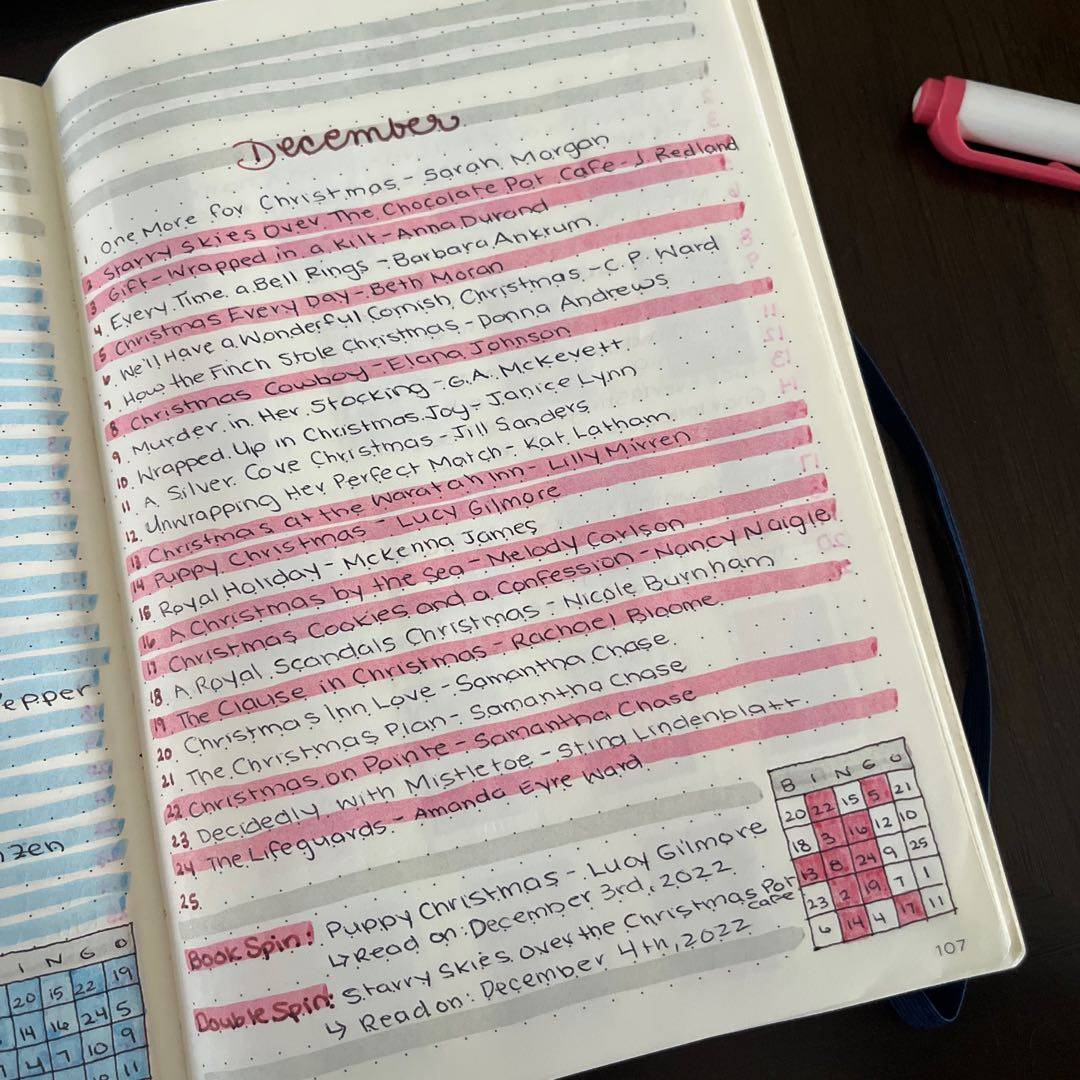 December
1. One More for Christmas - Sarah Morgan
2. Starry Skies Over The Chocolate Pot Cafe - J. Redland
3 Gift-Wrapped in a Kilt - Anna Durand
4 Every Time a Bell Rings - Barbara Ankrum
5. Christmas Every Day - Beth Moran
6. We'll Have a Wonderful Cornish Christmas - C.P. Ward
7 How the Finch Stole Christmas - Donna Andrews
8 Christmas Cowboy - Elana Johnson
9 Murder in Her Stocking - G.A. McKevett
10. Wrapped Up in Christmas Joy - Janice Lynn
11 A Silver Cove Christmas - Jill Sanders
12. Unwrapping Her Perfect Match - Kat Latham
13 Christmas at the Waratah Inn - Lilly Mirren
14 Puppy Christmas - Lucy Gilmore
15 Royal Holiday - McKenna James
16 A Christmas by the Sea - Melody Carlson
17 Christmas Cookies and a Confession - Nancy Naigle
18 A Royal Scandals Christmas - Nicole Burnham
19 The Clause in Christmas - Rachael Bloome
20 Christmas Inn Love - Samantha Chase
21 The Christmas Plan - Samantha Chase
22 Christmas on Pointe - Samantha Chase
23. Decidedly with Mistletoe - Stina Lindenblatt
24 The Lifeguards - Amanda Eyre Ward
25.
Book Spin: Puppy Christmas - Lucy Gilmore
↳ Read on: December 3rd, 2022
Double Spin: Starry Skies Over the Christmas Pot cafe
↳ Read on: December 4th, 2022
B I N G O
20 22 15 5 21
18 3 16 12 10
13 8 24 9 25
23 2 19 7 1
6 14 4 17 11
107
epper
zen
I N G O
20 15 22 19
14 16 24 5
4 7 10 9
11